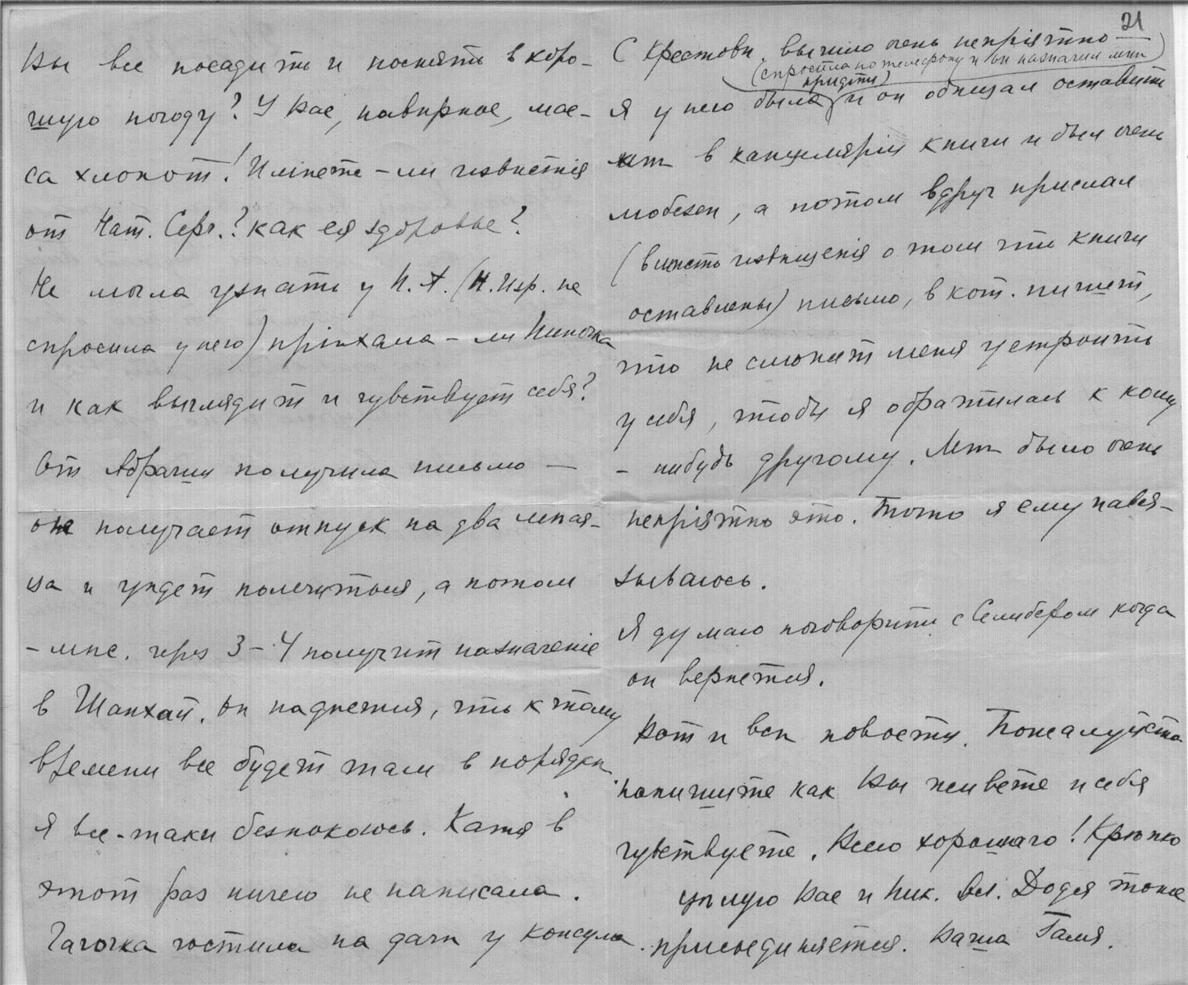 Вы все посадите и поспите в хоро-
шую погоду? У Вас, наверное, мас-
са хлопот! Имеете-ли известия
от Нат. Серг.? Как ея здоровье?
Не могла узнати у Н. А. (Н. Игр. не
спросила у него) приехала-ли Ниночка
и как выглядит и чувствует себя?
От Абраши получила письмо —
он получает отпуск на два меся-
ца и уедет полечиться, а потом
-мес. через 3-4 получит назначение
в Шанхай. Он надеется, что к тому
времени все будет там в порядке.
Я все-таки безпокоюсь. Катя в
этот раз ничего не написала.
Гагочка гостила на даче у консула.
21
С Крестовн. вышло очень непріятно
(спросила по телефону и он назначил мне
придти)
Я у него была и он обещал оставить
мне в канцеляріи книги и был очень
любезен, а потом вдруг прислал
(вместо извещенія о том что книги
оставлены) письмо, в кот. пишет,
что не сможет меня устроить
у себя, чтобы я обратилась к кому
-нибудь другому. Мне было очень
непріятно это. Точно я ему навя-
зываюсь.
Я думаю поговорить с Селибером когда
он вернется.
Вот и все новости. Пожалуйста
напишите как Вы живете и себя
чувствуете. Всего хорошаго! Крепко
целую Вас и Ник. Вл. Додя тоже
присоединяется. Ваша Галя.